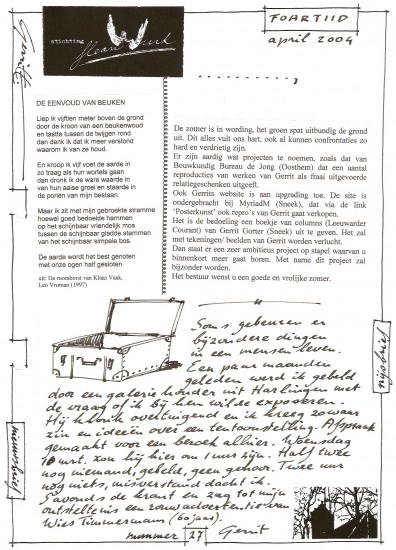 stichting
FOARTIID
april 2004
DE EENVOUD VAN BEUKEN
Liep ik vijftien meter boven de grond
door de kroon van een beukenwoud
en tastte tussen de twijgen rond
dan denk ik dat ik meer verstond
waarom ik van ze houd.
En kroop ik vijf voet de aarde in
zo traag als hun wortels gaan
dan dronk ik de ware waarde in
van hun aaise groei en staarde in
de poriën van mijn bestaan.
Maar ik zit met mijn gebroekte stramme
hoewel goed bedoelde hammen
op het schijnbaar vriendelijk mos
tussen de schijnbaar gladde stammen
van het schijnbaar simpele bos.
De aarde wordt het best genoten
met onze ogen half gesloten
uit: De mombonst van Klaas Vaak,
Leo Vroman (1997)
De zomer is in wording, het groen spat uitbundig de grond
uit. Dit alles vult ons hart, ook al kunnen confrontaties zo
hard en verdrietig zijn.
Er zijn aardig wat projecten te noemen, zoals dat van
Bouwkundig Bureau de Jong (Oosthem) dat een aantal
reproducties van werken van Gerrit als fraai uitgevoerde
relatiegeschenken uitgeeft.
Ook Gerrits website is aan upgrading toe. De site is
ondergebracht bij MyriadM (Sneek), dat via de link
'Posterkunst' ook repro's van Gerrit gaat verkopen.
Het is de bedoeling een boekje van columns (Leeuwarder
Courant) van Gerrit Gorter (Sneek) uit te geven. Het zal
met tekeningen/ beelden van Gerrit worden verlucht.
Dan staat er een zeer ambitieus project op stapel waarvan u
binnenkort meer gaat horen. Met name dit project zal
bijzonder worden.
Het bestuur wenst u een goede en vrolijke zomer.
Soms gebeuren er
bijzondere dingen
in een mensenleven.
Een paar maanden
geleden werd ik gebeld
door een galeriehouder uit Harlingen met
de vraag of ik bij hem wilde exposeren.
Hij klonk overtuigend en ik kreeg zowaar
zin en ideeën over een tentoonstelling. Afspraak
gemaakt voor een bezoek alhier. Woensdag
10 mrt. zou hij hier om 1 uur zijn. Half twee
nog niemand, gebeld, geen gehoor. Twee uur
nog niets, misverstand dacht ik.
's Avonds de krant en zag tot mijn
ontsteltenis een rouwadvertentie van
Wies Timmermans (60 jaar).
Gerrit
nummer 27
nieuwsbrief
nijsbrief